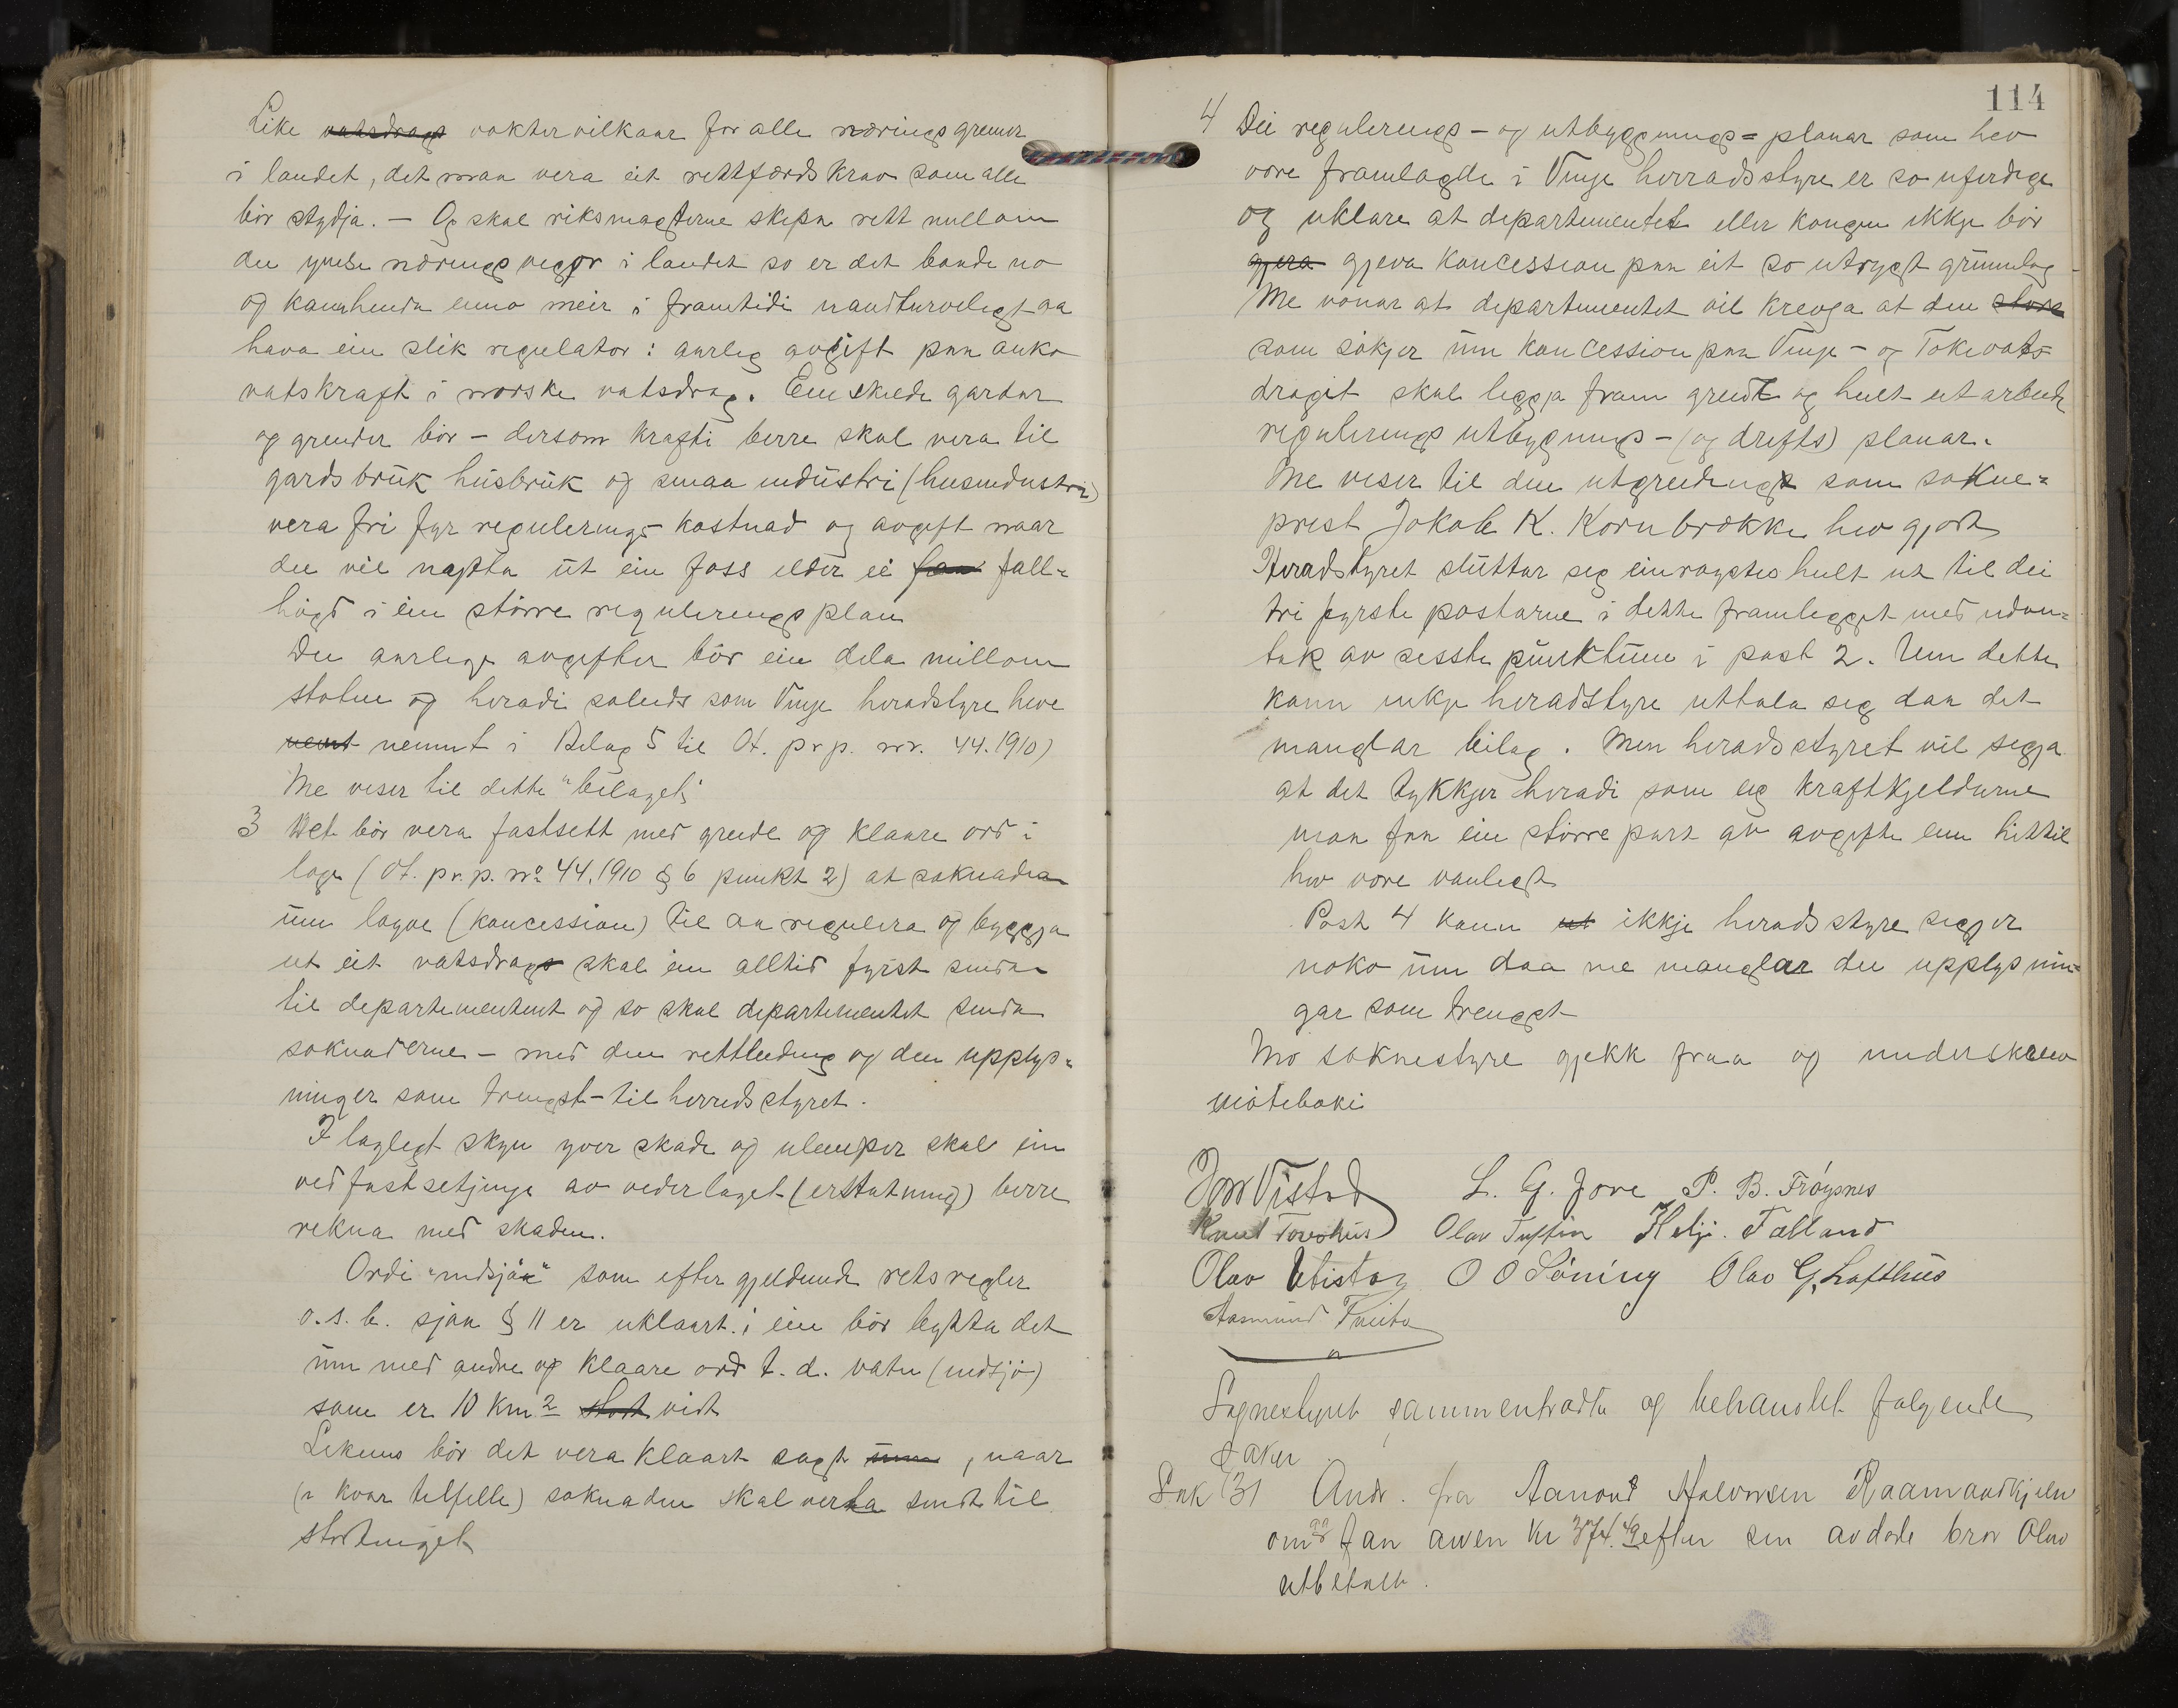 Like vatsdrags vokstervilkaar for alle næringsgreiner
i landet, det maa vera eit rettferdskrav som alle
bör stydja. – Og skal riksmagterne skipa rett millom
dei ymse næringsvegor i landet so er det baade no
og kannhenda enno meir i framtidi naudturvelegt aa
hava ein slik regulator: aarleg avgift paa auka
vatskraft i norske vatsdrag. Einskilde gardar
og grender bör – dersom krafti berre skal vera til
gardsbruk husbruk og smaa industri (husindustri)
vera fri fyr regulerings-kostnad og avgift naar
dei vil nøtta ut ein foss elder ei fall-
högd i ein större reguleringsplan
Dei aarlege avgifter bör ein dela millom
staten og heradi soleids som Vinje heradstyre heve
nemt nemnt i Bilag 5 til Ot. prp. nr. 44. 1910)
Me viser til dette "bilaget"
3 Det bör vera fastsett med greide og klaare ord i
loge (Ot. pr.p. No 44. 1910 § 6 punkt 2) at soknaden
um løyve (koncession) til aa regulera og byggja
ut eit vatsdrag skal ein alltid fyrst senda
til departementet og so skal departementet senda
soknaderne – med den rettleiding og den upplys-
ninger som trengst – til herredsstyret.
I løglegt skyn yver skade og ulemper skal ein
ved fastsetjinge av vederlaget (erstatning) berre
rekna med skaden.
Ordi "indsjöa" som efter gjeldende rets regler
o.s.b. sjaa § 11 er uklaart. i ein bör bytta det
um med andre og klaare ord t. d. vatn (indsjö)
som er 10 km2 stort vidt
Likeins bör det vera klaart sagt um , naar
(i kvar tilfelle) soknaden skal verta sendt til
stortinget
114
4 Dei regulerings- og utbyggnings-planar som hev
vore framlagde i Vinje herradsstyre er so uferdige
og uklare at departementet eller kongen ikkje bör
gjera gjeva koncession paa eit so utrygt grunnlag
Me vonar at departementet vil krevja at den store
som sökjer um koncession paa Vinje- og Tokevats-
draget skal leggja fram greidt og heilt utarbeide
regulerings utbygnings- (og drifts) planar.
Me viser til den utgreiding som sokne-
prest Jakob K. Kornbrække hev gjort
Heradstyret sluttar seg einröystes heilt ut til dei
tri fyrste postarne i dette framlegget med undan-
tak av siste punktum i post 2. Um dette
kann inkje heradstyre uttala seg daa det
manglar bilag. Men heradsstyret vil segja
at det tykkjer heradi som eig kraftkjeldurne
maa faa ein större part av avgifte enn hittil
hev vore vanlegt
Post 4 kann ut ikkje heradsstyre segja
noko um daa me manglar dei upplysnin-
gar som trengst
Mo soknestyre gjekk fraa og underskreiv
möteboki
Jon Vistad L. G. Jore P. B. Fröysnes
Knut Toreshus Olav Tuftin Helje. Talland
Olav Utistog O O Löning Olav G. Lofthus
Aasmund Tveito
Sognestyret sammentradte og behandlet følgende
saker
Sak 131 Andr. fra Aanond Halvorsen Raamandkjeln
om at faa arven kr 374.49 efter sin avdøde bror Olav
utbetalt.